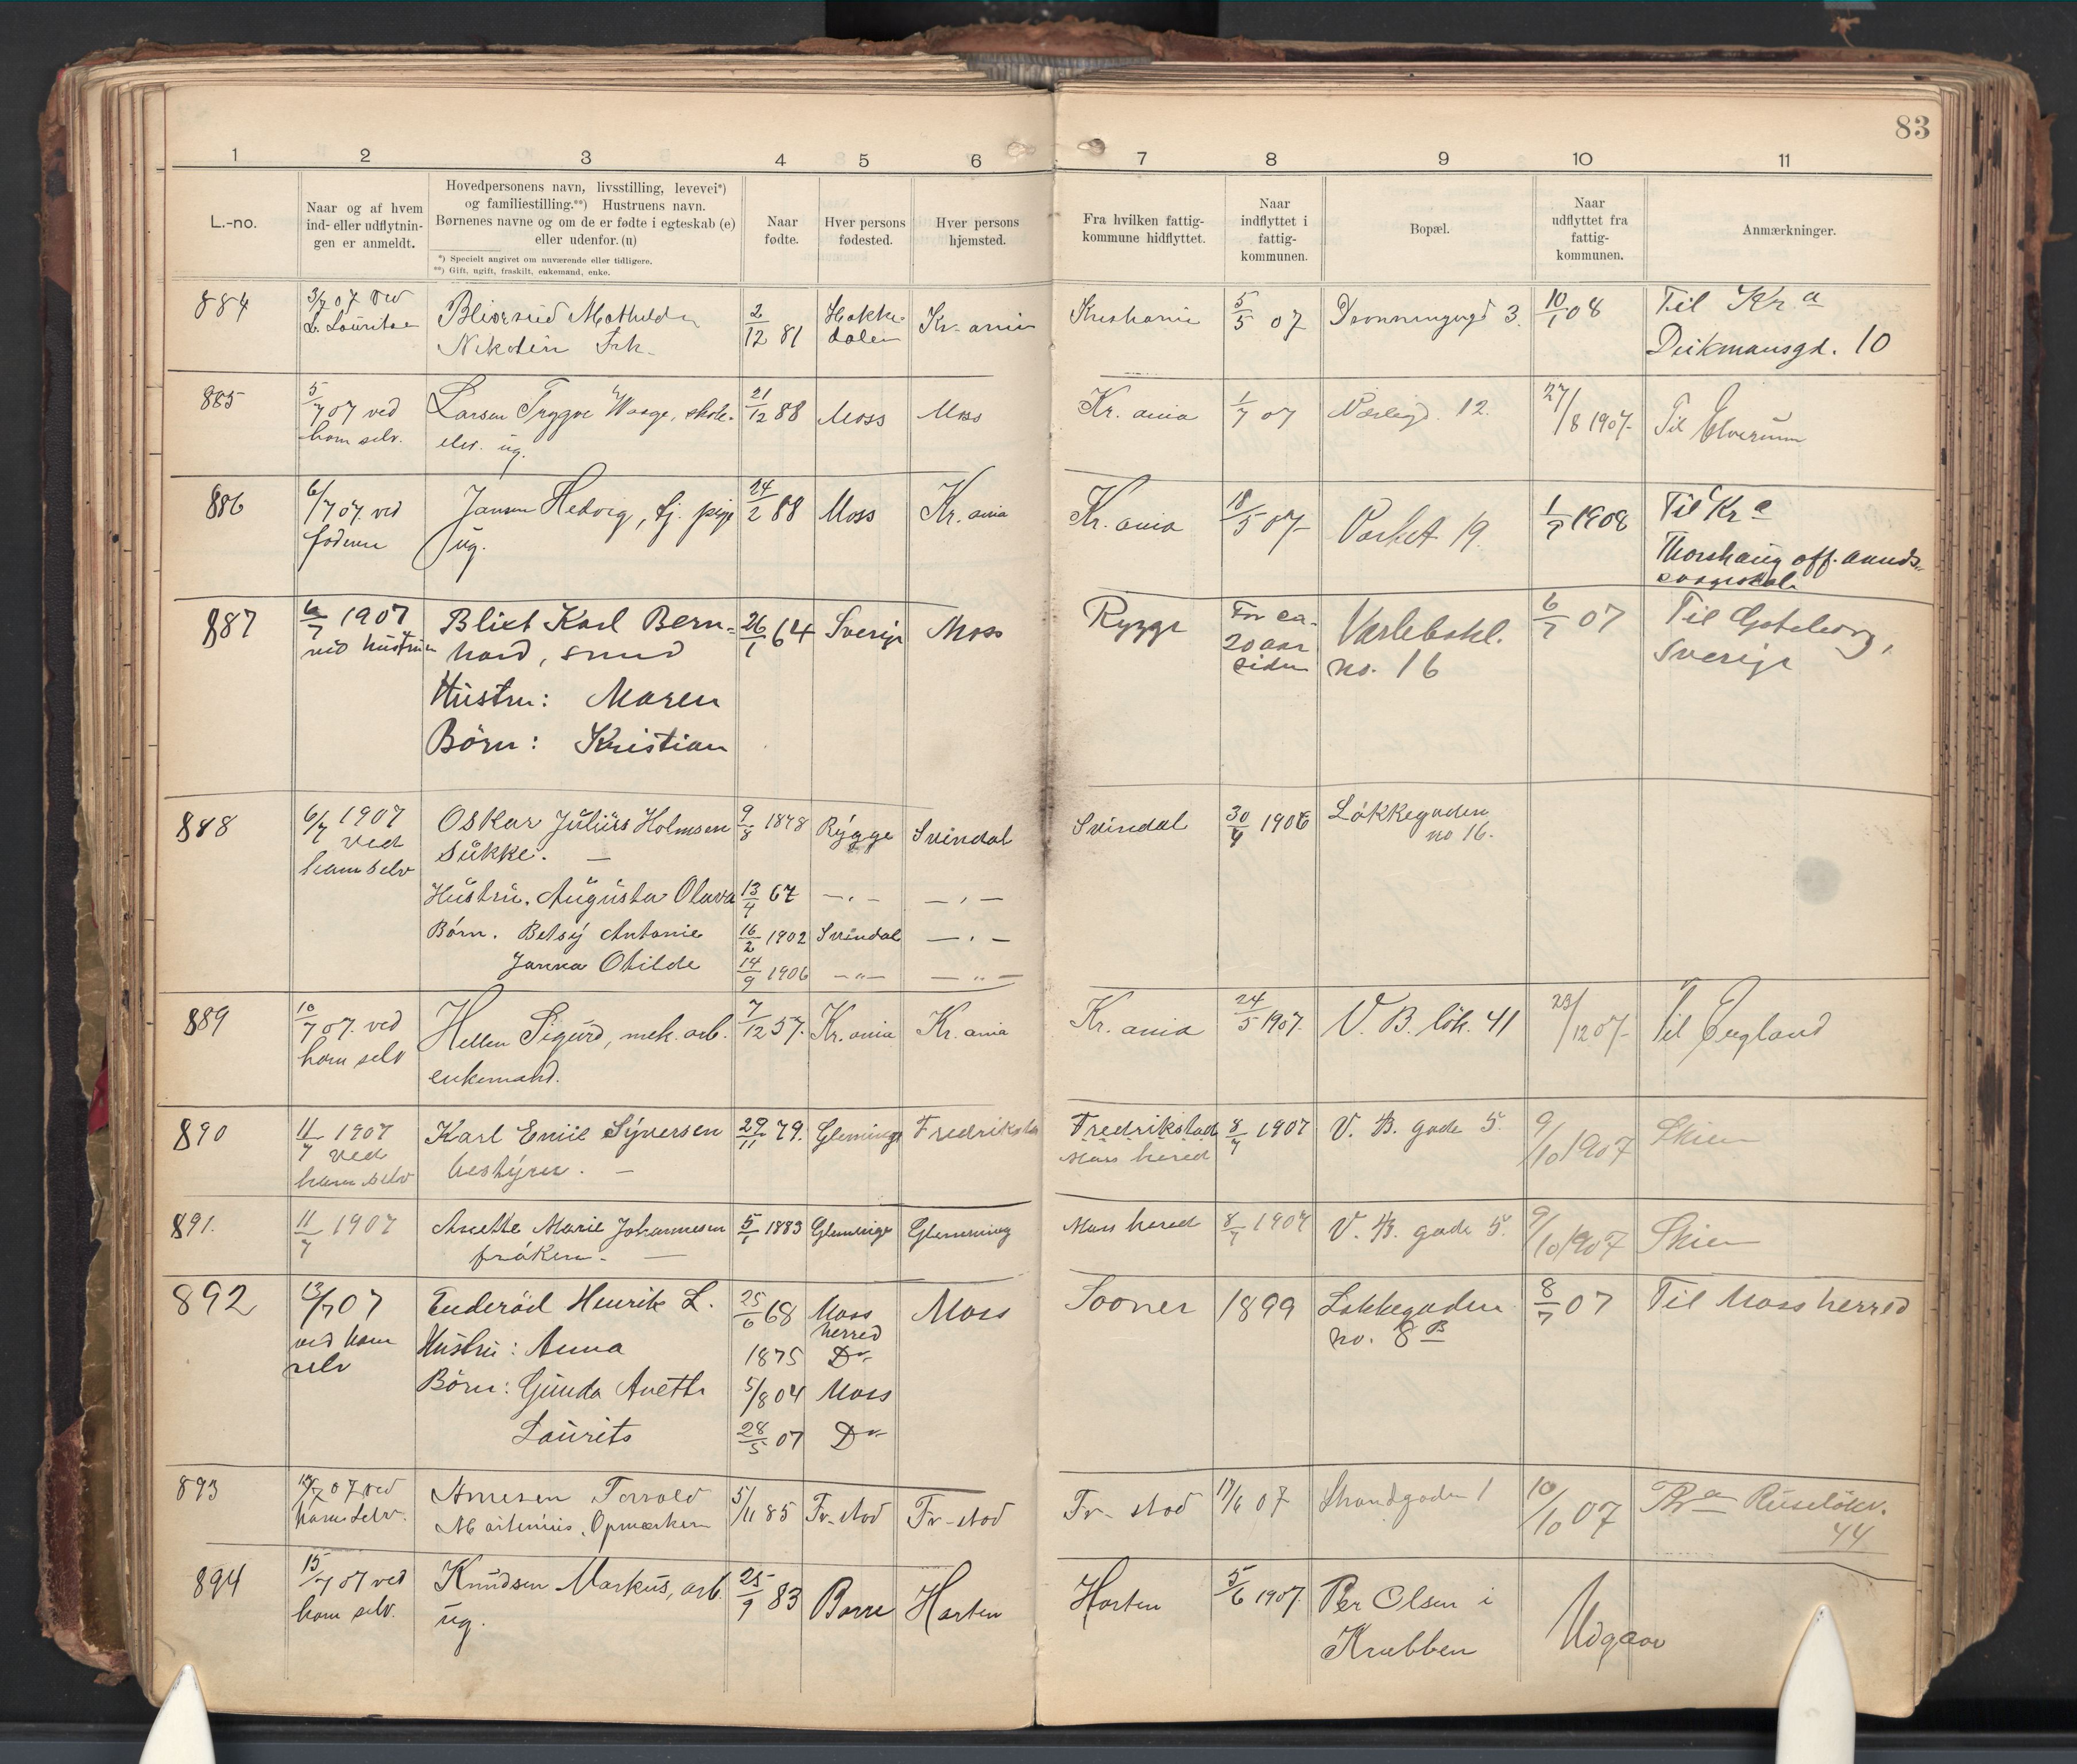 83
1 2 3 4 5 6 7 8 9 10 11
L.-no.
Naar og af hvem
ind- eller udflytnin-
gen er anmeldt.
Hovedpersonens navn, livsstilling, levevei*)
og familiestilling.**) Hustruens navn.
Børnenes navne og om de er fødte i egteskab (e)
eller udenfor. (u)
*) Specielt angivet om nuværende eller tidligere.
**) Gift, ugift, fraskilt, enkemand, enke.
Naar
fødte.
Hver persons
fødested.
Hver persons
hjemsted.
Fra hvilken fattig-
kommune hidflyttet.
Naar
indflyttet i
fattig-
kommunen.
Bopæl.
Naar
udflyttet fra
fattig-
kommunen.
Anmærkninger.
884 3/7 07 ved 2/12 81 Hakke- Kr. ania Kristiania 5/5 07 Dronningensgd 3. 10/1 08 Til Kr a
dalen
Frk. Deikmansgd. 10
885 5/7 07 ved Larsen Trygve Waage, skole- 21/12 88 Moss Moss Kr. ania 1/7 07 12. 27/8 1907. Til Elverum
ham selv. elev. ug.
886 6/7 07. ved Jansen Hedvig, tj. pige 24/2 88 Moss Kr. ania Kr. ania 18/5 07 Parket 19. 1/7 1908 Til Kr a
faderen ug. Thorshaug off.
887 6/7 1907 Blixt Karl Bern- 26/1 64 Sverige Moss Rygge For ca. Varlebakl. 6/7 07 Til Gøteborg,
ved hustruen hard, smed 20 aar no. 16 Sverige
siden
Hustru: Maren
Børn: Kristian
888 6/7 1907 Oskar Julius Holmsen 9/8 1878 Rygge Svindal Svindal 30/4 1906 Løkkegaden
ved Sukke. — no 16.
ham selv
Hustru. Augusta Olava 13/4 67 —„— —„—
Børn. Betsy Antonie 16/2 1902 Svindal —„—
Janna Otilde 14/9 1906 —„— —„—
889 10/7 07. ved Hellen Sigurd, mek. arb. 7/12 57. Kr. ania Kr. ania Kr. ania 24/5 1907. V. B. løk. 41 23/12 07. Til England
ham selv enkemand.
890 11/7 1907 Karl Emil Syversen 29/11 79. Glemminge Fredrikstad Fredrikstad 8/7 1907 V. B. gade 5. 9/10 1907 Skien
ved bestyrer. — Moss herred
ham selv
891. 11/7 1907 Anette Marie Johannesen 5/1 1883 Glemminge Glemming Moss herred 8/7 1907 V. B. gade 5. 9/10 1907 Skien
frøken. —
892 13/7 07 Enderød Henrik L. 25/6 68 Moss Moss Sooner 1899 Løkkegaden 8/7 07 Til Moss herred
herred no. 8 B
ved ham
selv
Hustru: Anna 1875 Do
Børn: Gunda Anette 5/8 04 Moss
Laurits 28/5 07 Do
893 07 ved Arnesen Torvald 5/11 85 Fr-stad Fr-stad Fr-stad 17/6 07 Strandgaden 1 10/10 07 Kr a Ruseløkv.
ham selv. Martinius, Opmerker 44
894 15/7 07 ved Knudsen Markus, arb. 25/9 83 Borre Horten Horten 5/6 1907. Per Olsen i Udgaar
ham selv. ug. Krabben